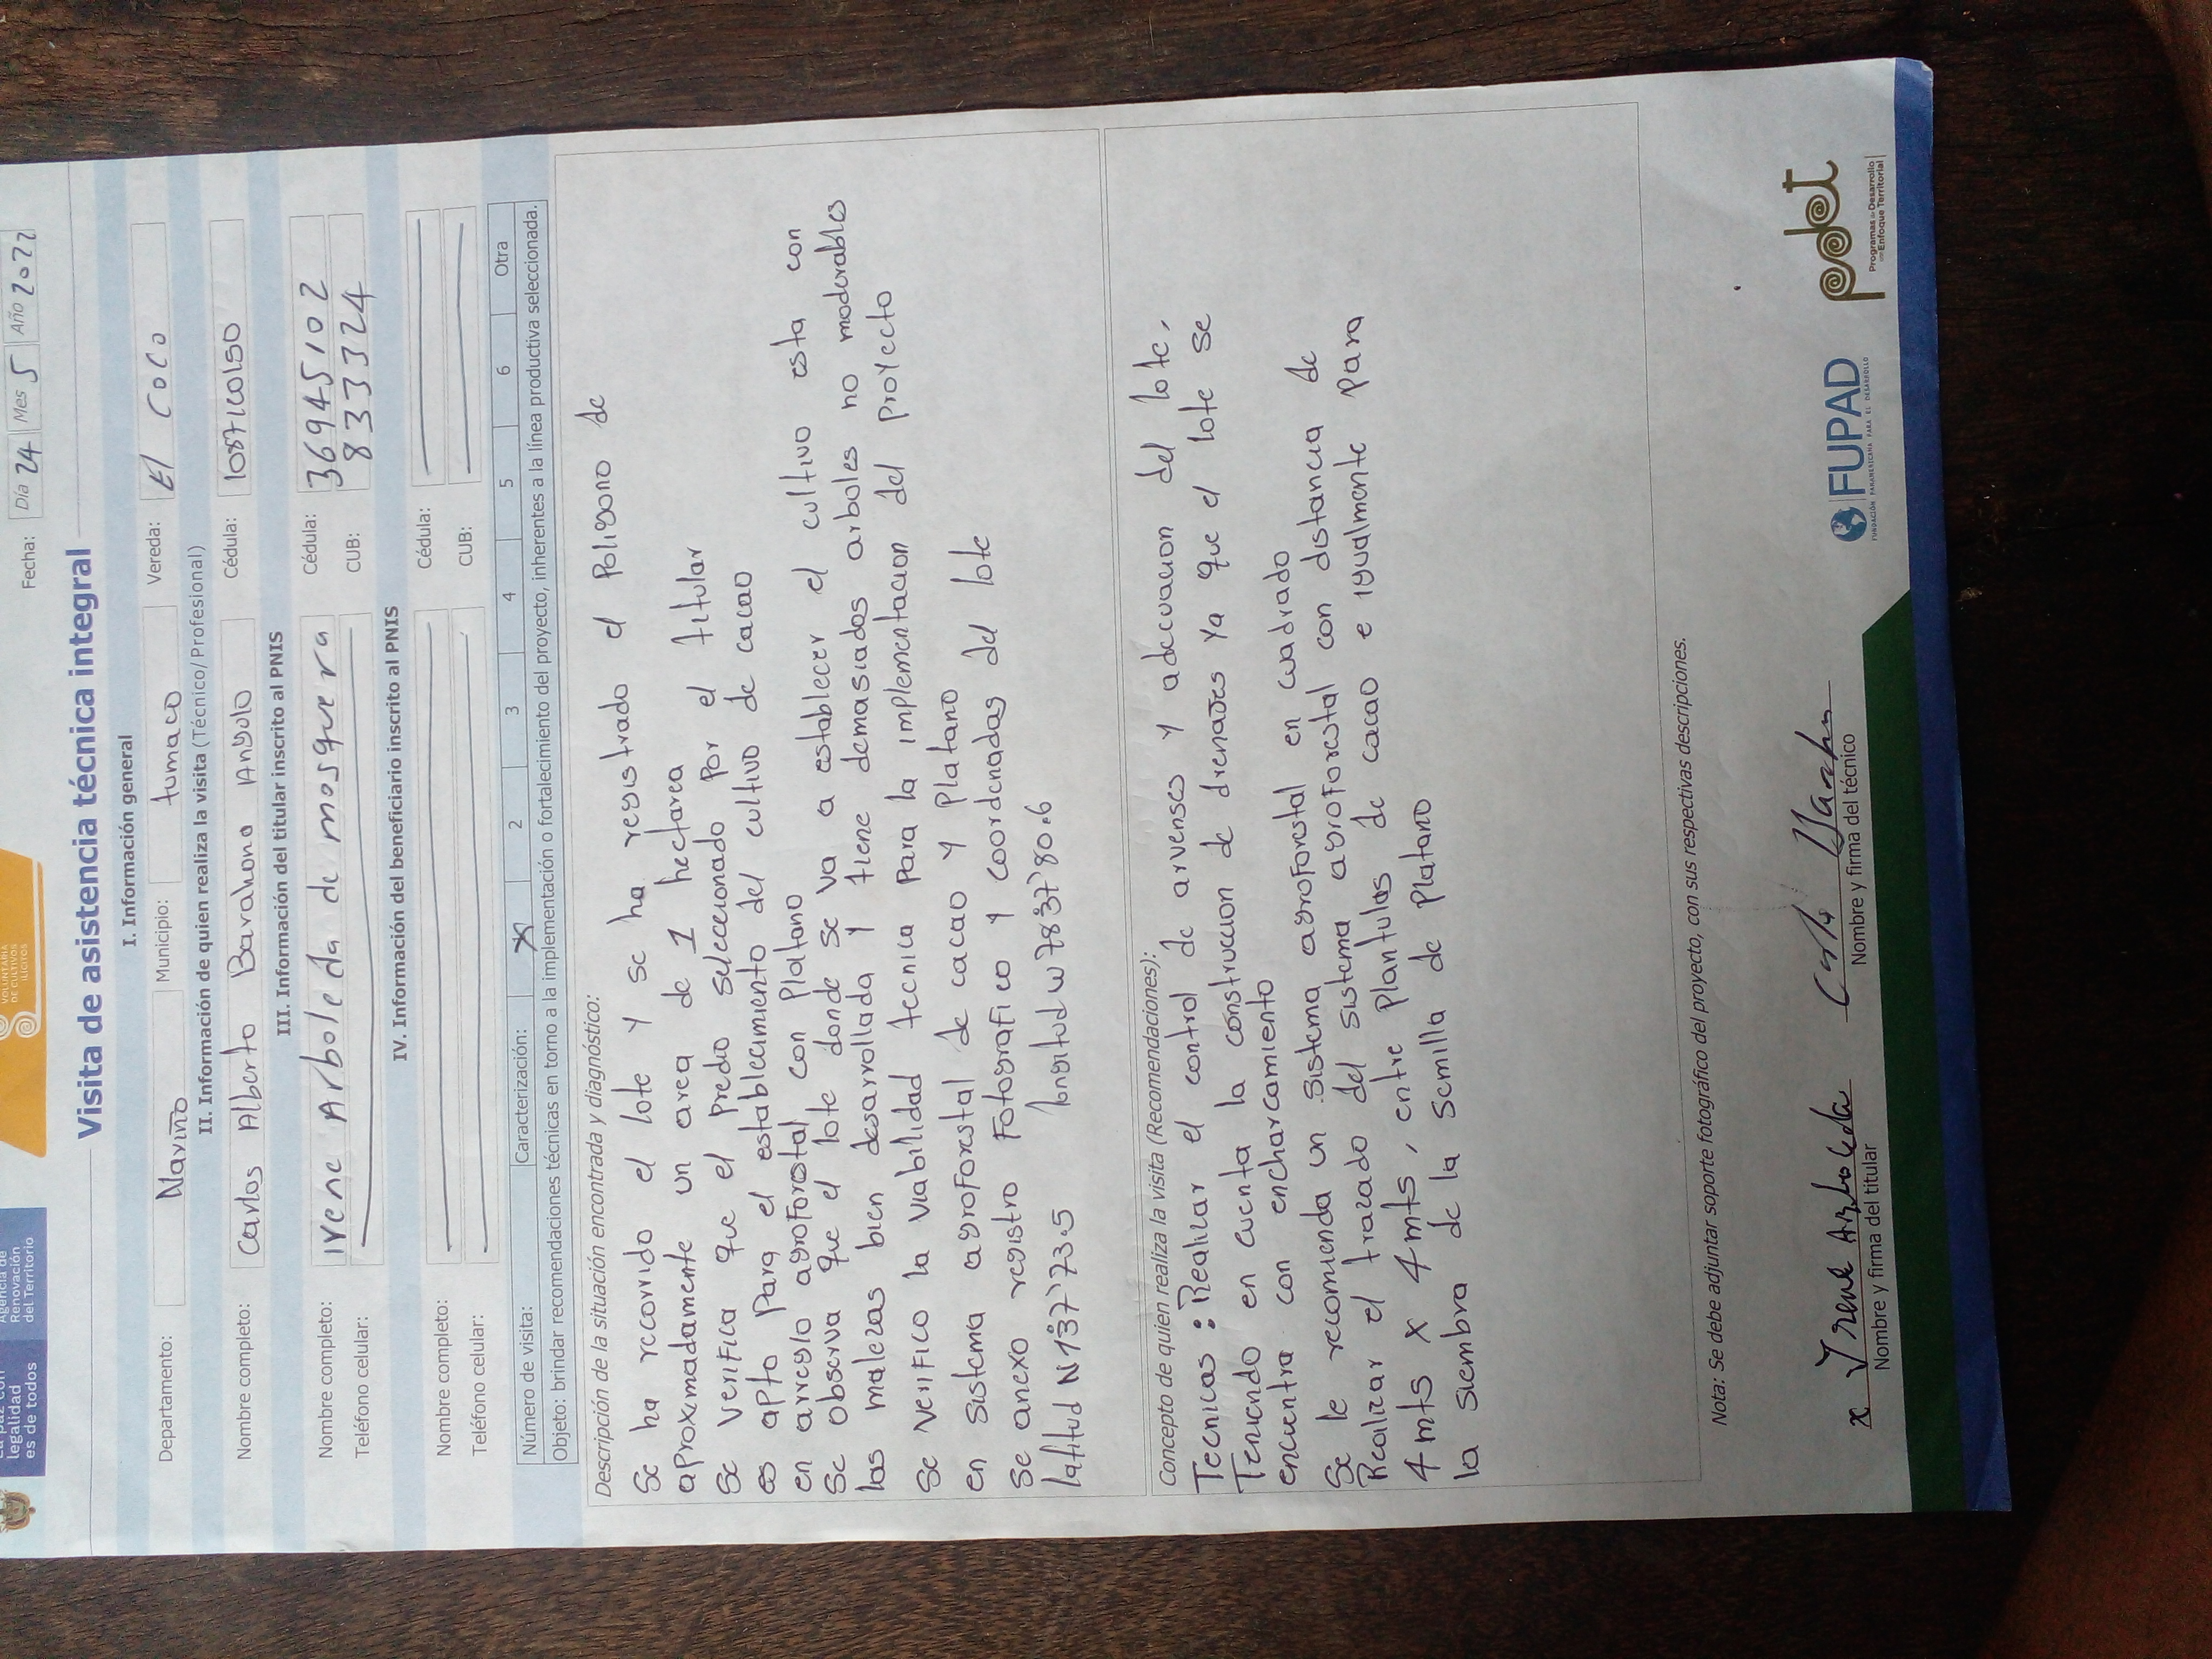 VOLUNTARIA
DE CULTIVOS
ILÍCITOS
legalidad
es de todos
Renovación
del Territorio
Fecha: Día 24 Mes 5 Año 2022
Visita de asistencia técnica integral
I. Información general
Departamento: Nariño Municipio: tumaco Vereda: El Coco
II. Información de quien realiza la visita (Técnico/Profesional)
Nombre completo: Carlos Alberto Barahona Angulo Cédula:
III. Información del titular inscrito al PNIS
Nombre completo: irene Arboleda de mosquera Cédula: 36945102
Teléfono celular: CUB: 8333324
IV. Información del beneficiario inscrito al PNIS
Nombre completo: Cédula:
Teléfono celular: CUB:
Número de visita: Caracterización: X 2 3 4 5 6 Otra
Objeto: brindar recomendaciones técnicas en torno a la implementación o fortalecimiento del proyecto, inherentes a la línea productiva seleccionada.
Descripción de la situación encontrada y diagnóstico:
Se ha recorrido el lote y se ha registrado el Poligono de
aproximadamente un area de 1 hectarea
Se verifica que el predio seleccionado por el titular
es apto para el establecimiento del cultivo de cacao
en arreglo agroforestal con Platano
Se observa que el lote donde se va a establecer el cultivo esta con
las malezas bien desarrollada y tiene demasiados arboles no moderables
Se verifico la viabilidad tecnica para la implementacion del proyecto
en sistema agroforestal de cacao y Platano
Se anexo registro fotografico y coordenadas del lote
latitud N1°37'73.5 longitud w78°37'80.6
Concepto de quien realiza la visita (Recomendaciones):
Tecnicas: Realizar el control de arvenses y adecuacion del lote,
Teniendo en cuenta la construccion de drenajes ya que el lote se
encuentra con encharcamiento
Se le recomienda un sistema agroforestal en cuadrado
Realizar el trazado del sistema agroforestal con distancia de
4 mts x 4 mts, entre Plantulas de cacao e igualmente para
la siembra de la semilla de Platano
Nota: Se debe adjuntar soporte fotográfico del proyecto, con sus respectivas descripciones.
x Irene Arboleda
Nombre y firma del titular
Nombre y firma del técnico
FUPAD
FUNDACIÓN PANAMERICANA PARA EL DESARROLLO
pdet
Programas de Desarrollo
con Enfoque Territorial